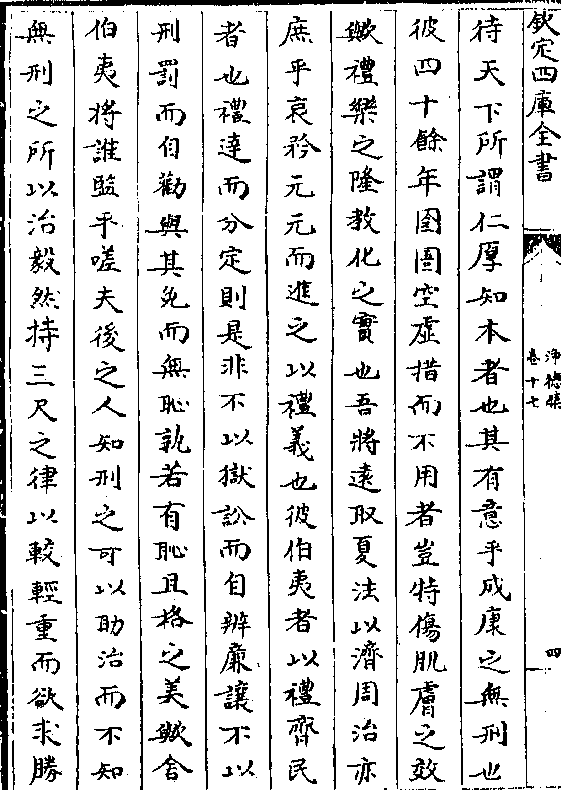 欽定四庫全書
淨德集
卷十七
四
待天下所謂仁厚知本者也其有意乎成康之無刑也
彼四十餘年囹圄空虛措而不用者豈特傷肌膚之效
歟禮樂之隆教化之實也吾將遠取夏法以濟周治亦
庶乎哀矜元元而進之以禮義也彼伯夷者以禮齊民
者也禮達而分定則是非不以獄訟而自辨廉讓不以
刑罰而自勸與其免而無恥孰若有恥且格之美歟舍
伯夷將誰監乎嗟夫後之人知刑之可以助治而不知
無刑之所以治毅然持三尺之律以較輕重而欲求勝